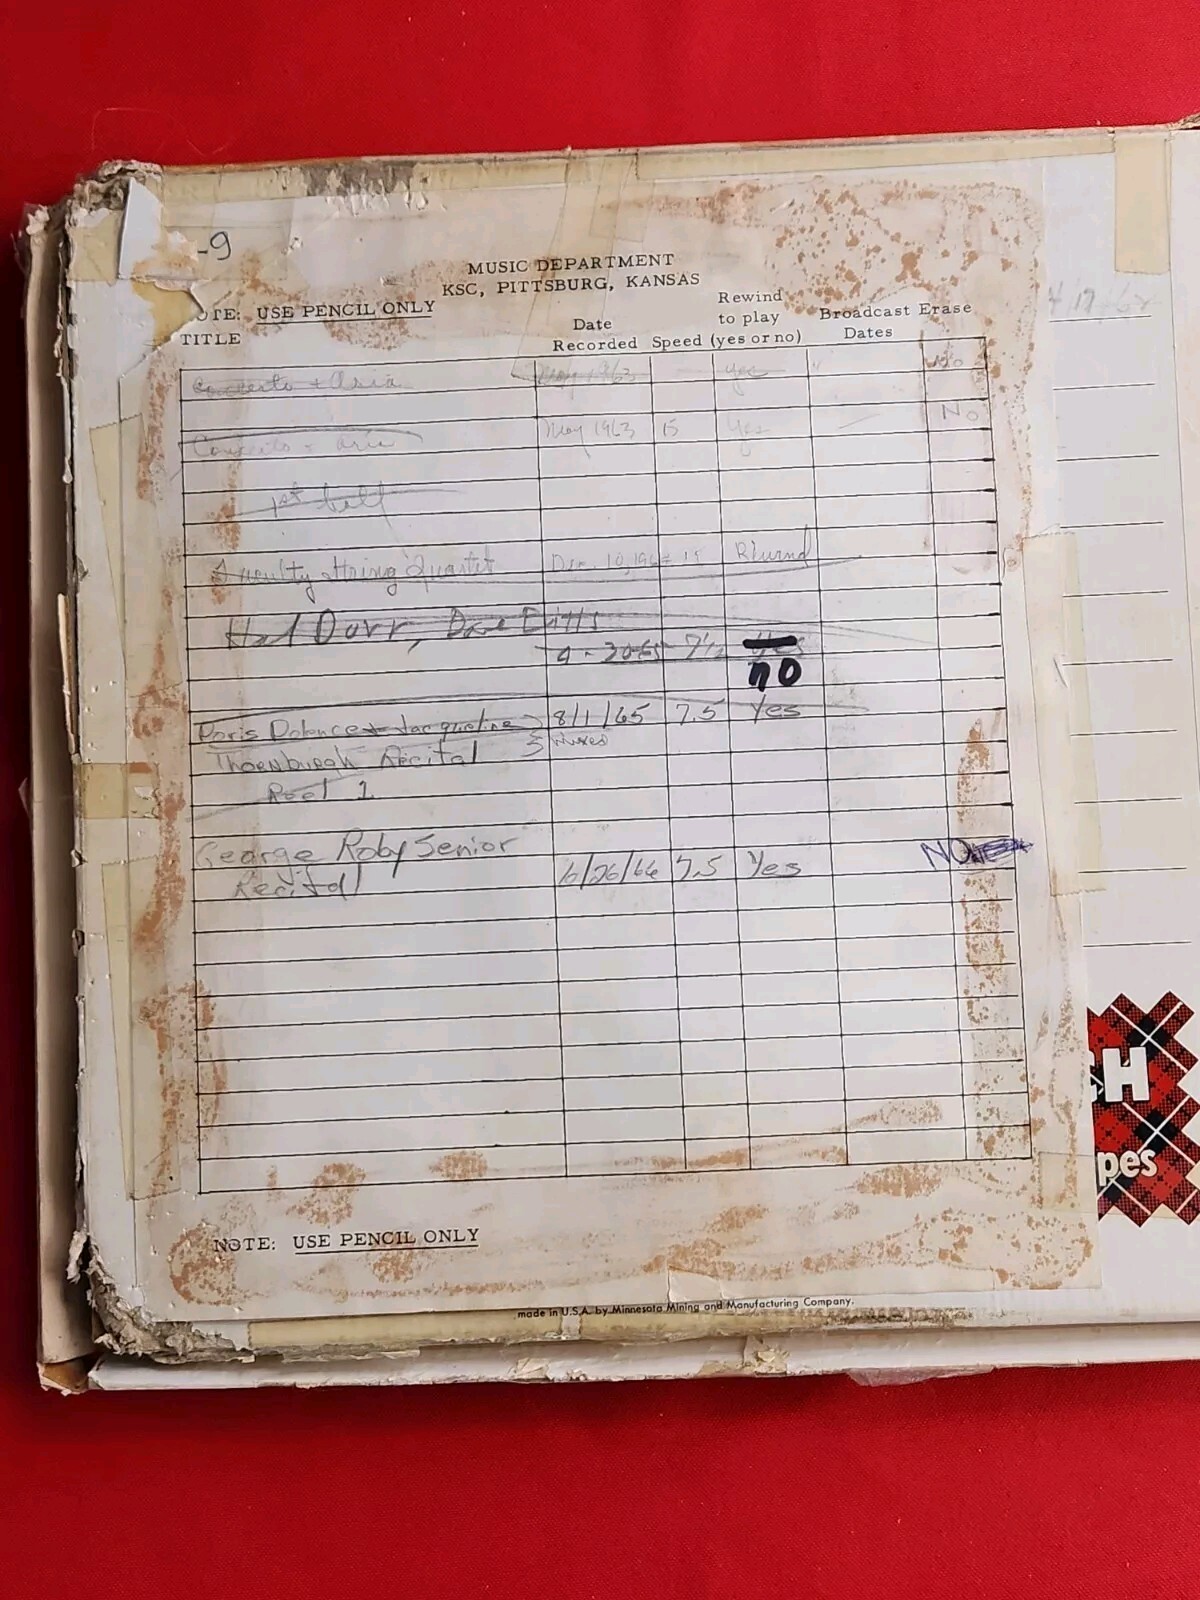 -9
MUSIC DEPARTMENT
KSC, PITTSBURG, KANSAS
OTE: USE PENCIL ONLY
TITLE Date Recorded Speed Rewind to play (yes or no) Broadcast Dates Erase
Concerto + Aria May 1963 yes " No
No
Concerto - Aria May 1963 15 Yes
1st half
Faculty String Quartet Dec. 10, 15 Rewind
Hal Dorr, Dave
4-30-65 7½ yes
no
Doris Dolence + Jacqueline 8/1/65 7.5 Yes
Thornburgh Recital
Reel 1
George Roby Senior NO
Recital 6/26/66 7.5 Yes
NOTE: USE PENCIL ONLY
made in U.S.A. by Minnesota Mining and Manufacturing Company.
CH
pes